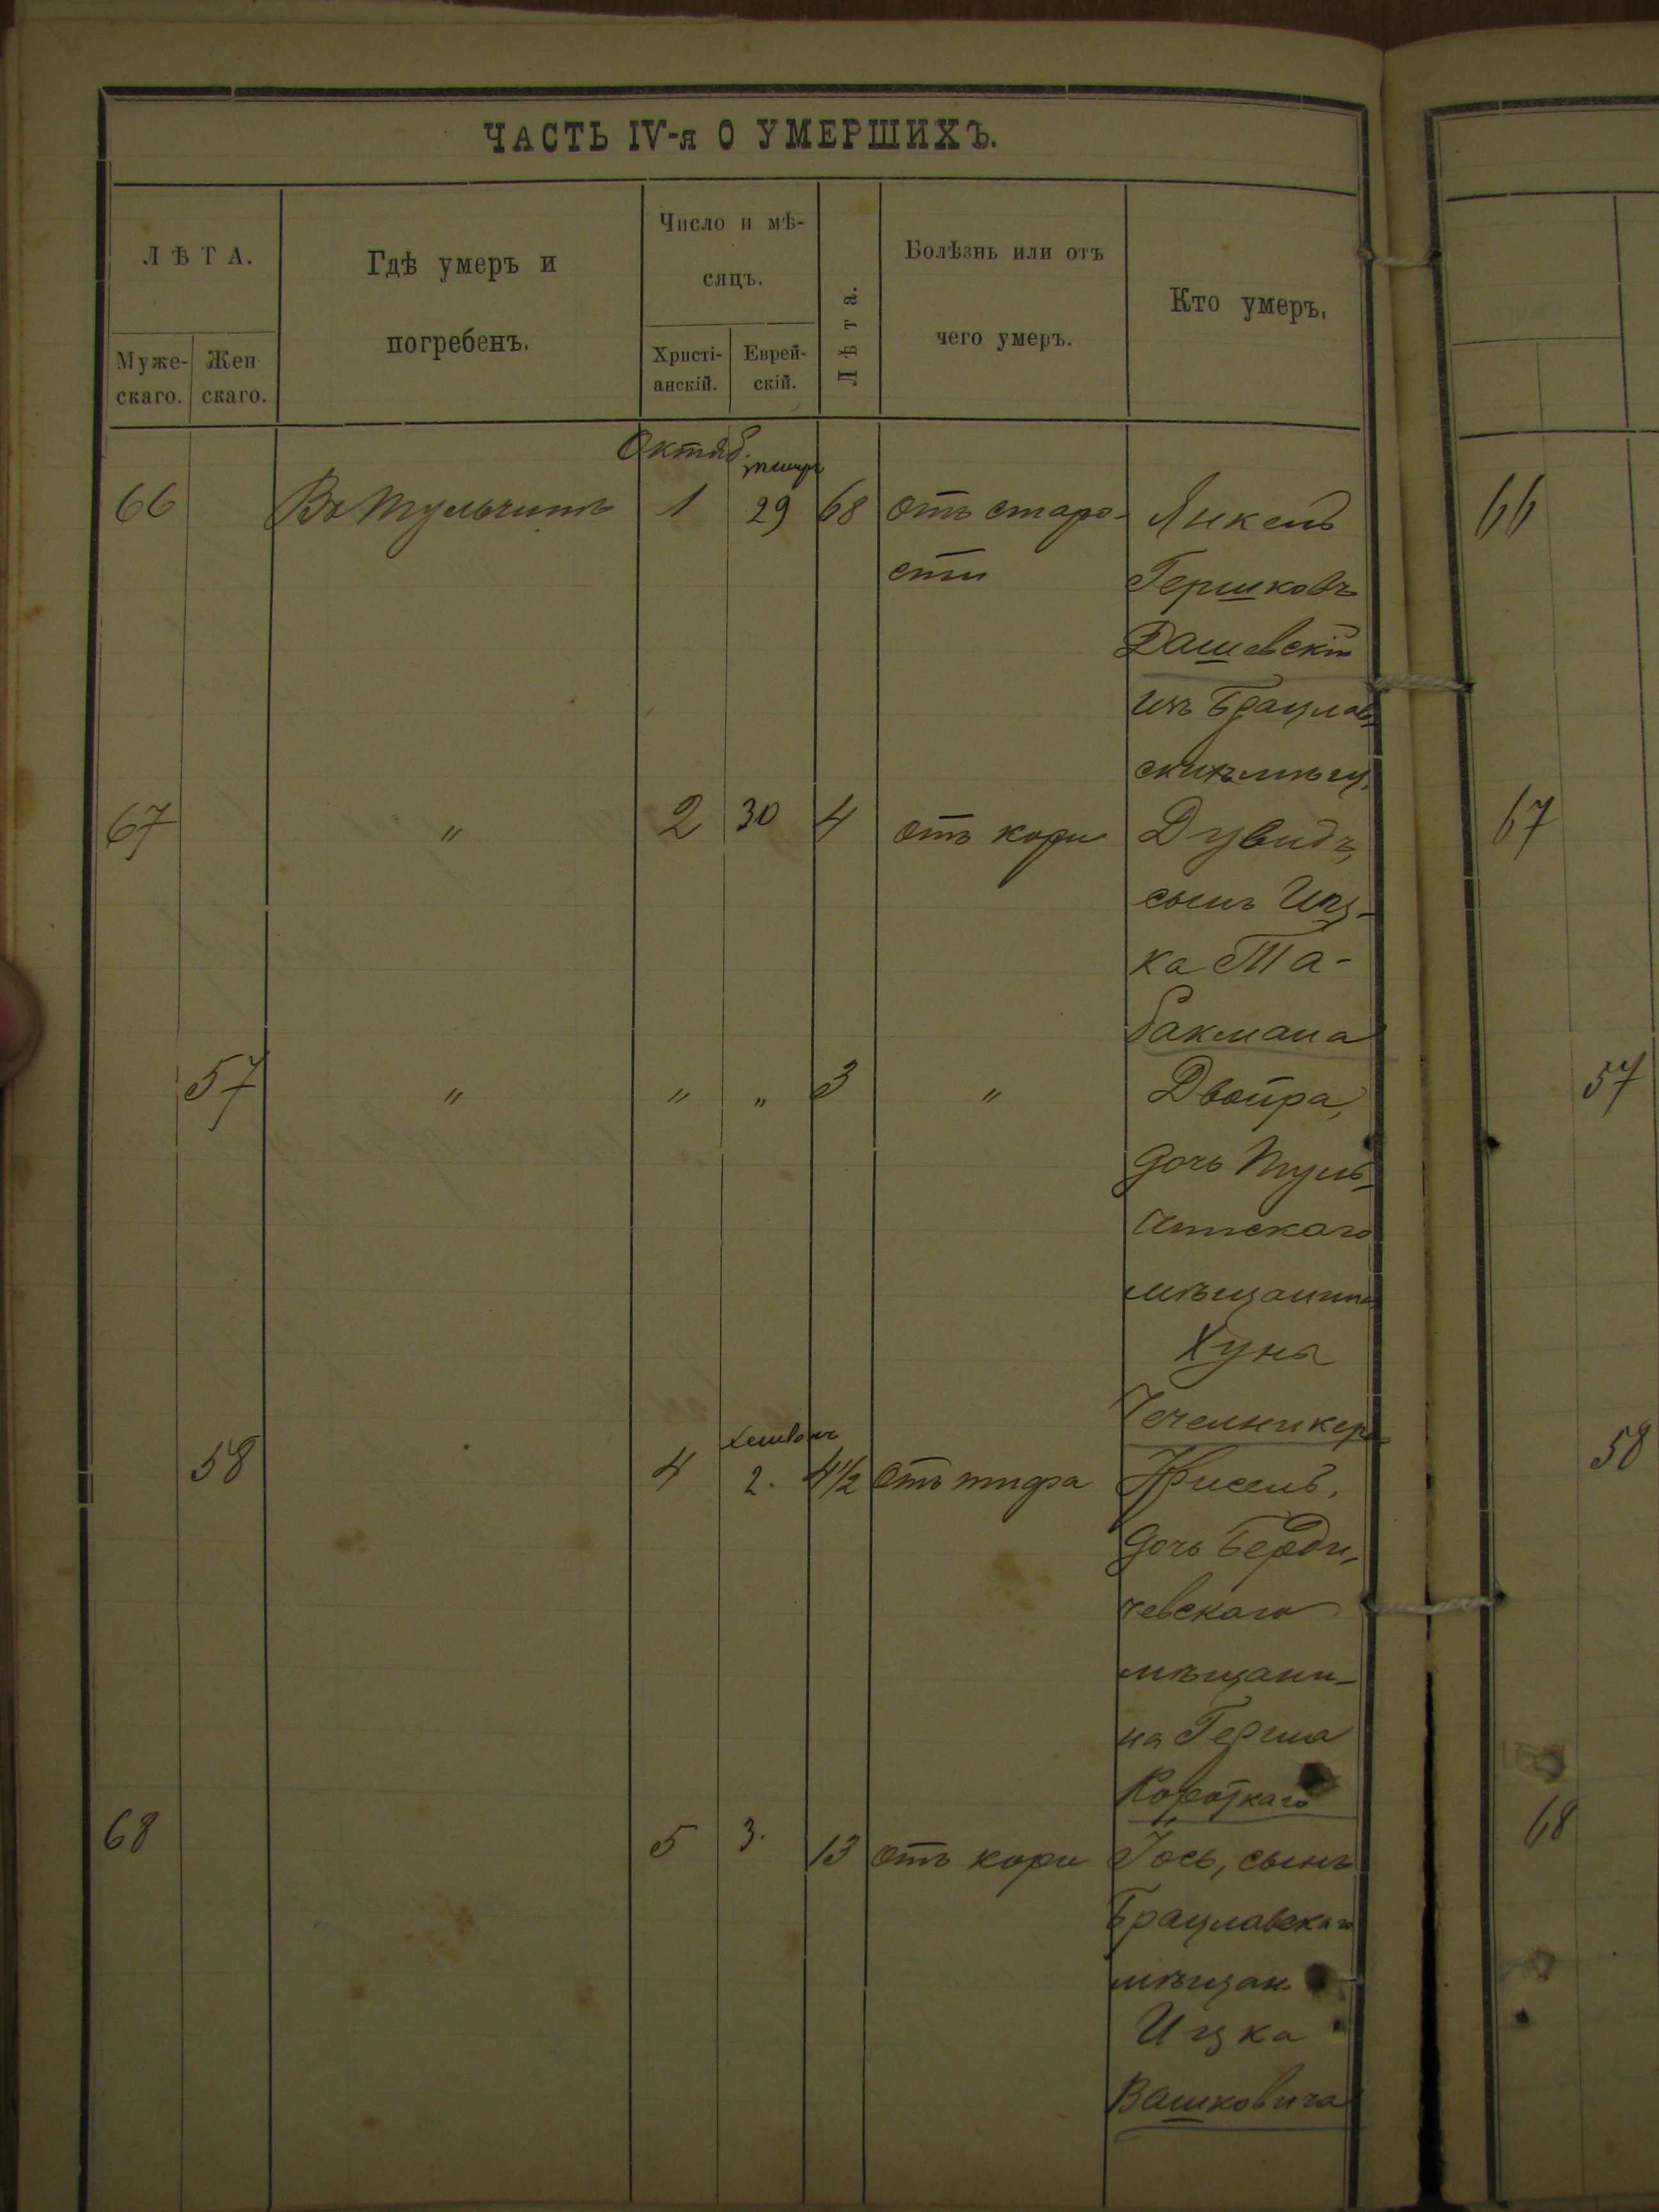 ЧАСТЬ IV-я О УМЕРШИХЪ.
ЛѢТА.
Муже-
скаго.
Жен
скаго.
Гдѣ умеръ и
погребенъ.
Число и мѣ-
сяцъ.
Христі-
анскій.
Еврей-
скій.
Лѣта.
Болѣзнь или отъ
чего умеръ.
Кто умеръ.
Октяб.
66 Въ Тульчинѣ 1 29 68 отъ старо- Янкель 66
сти Гершковъ
Дашевскій
изъ Брацлав
скихъ мѣщ.
67 " 2 30 4 отъ кори Дувидъ, 67
сынъ Иц-
ка Та-
бакмана
57 " " " 3 " Двойра, 57
дочь Туль-
чинскаго
мѣщанина
Хуна
Чечельникера
Хешвонъ
58 4 2. 4 1/2 отъ тифа 58
дочь Берди-
чевскаго
мѣщани-
на Герша
Короткаго
68 5 3. 13 отъ кори Іось, сынъ 68
Брацлавскаго
мѣщан.
Ицка
Вашковича